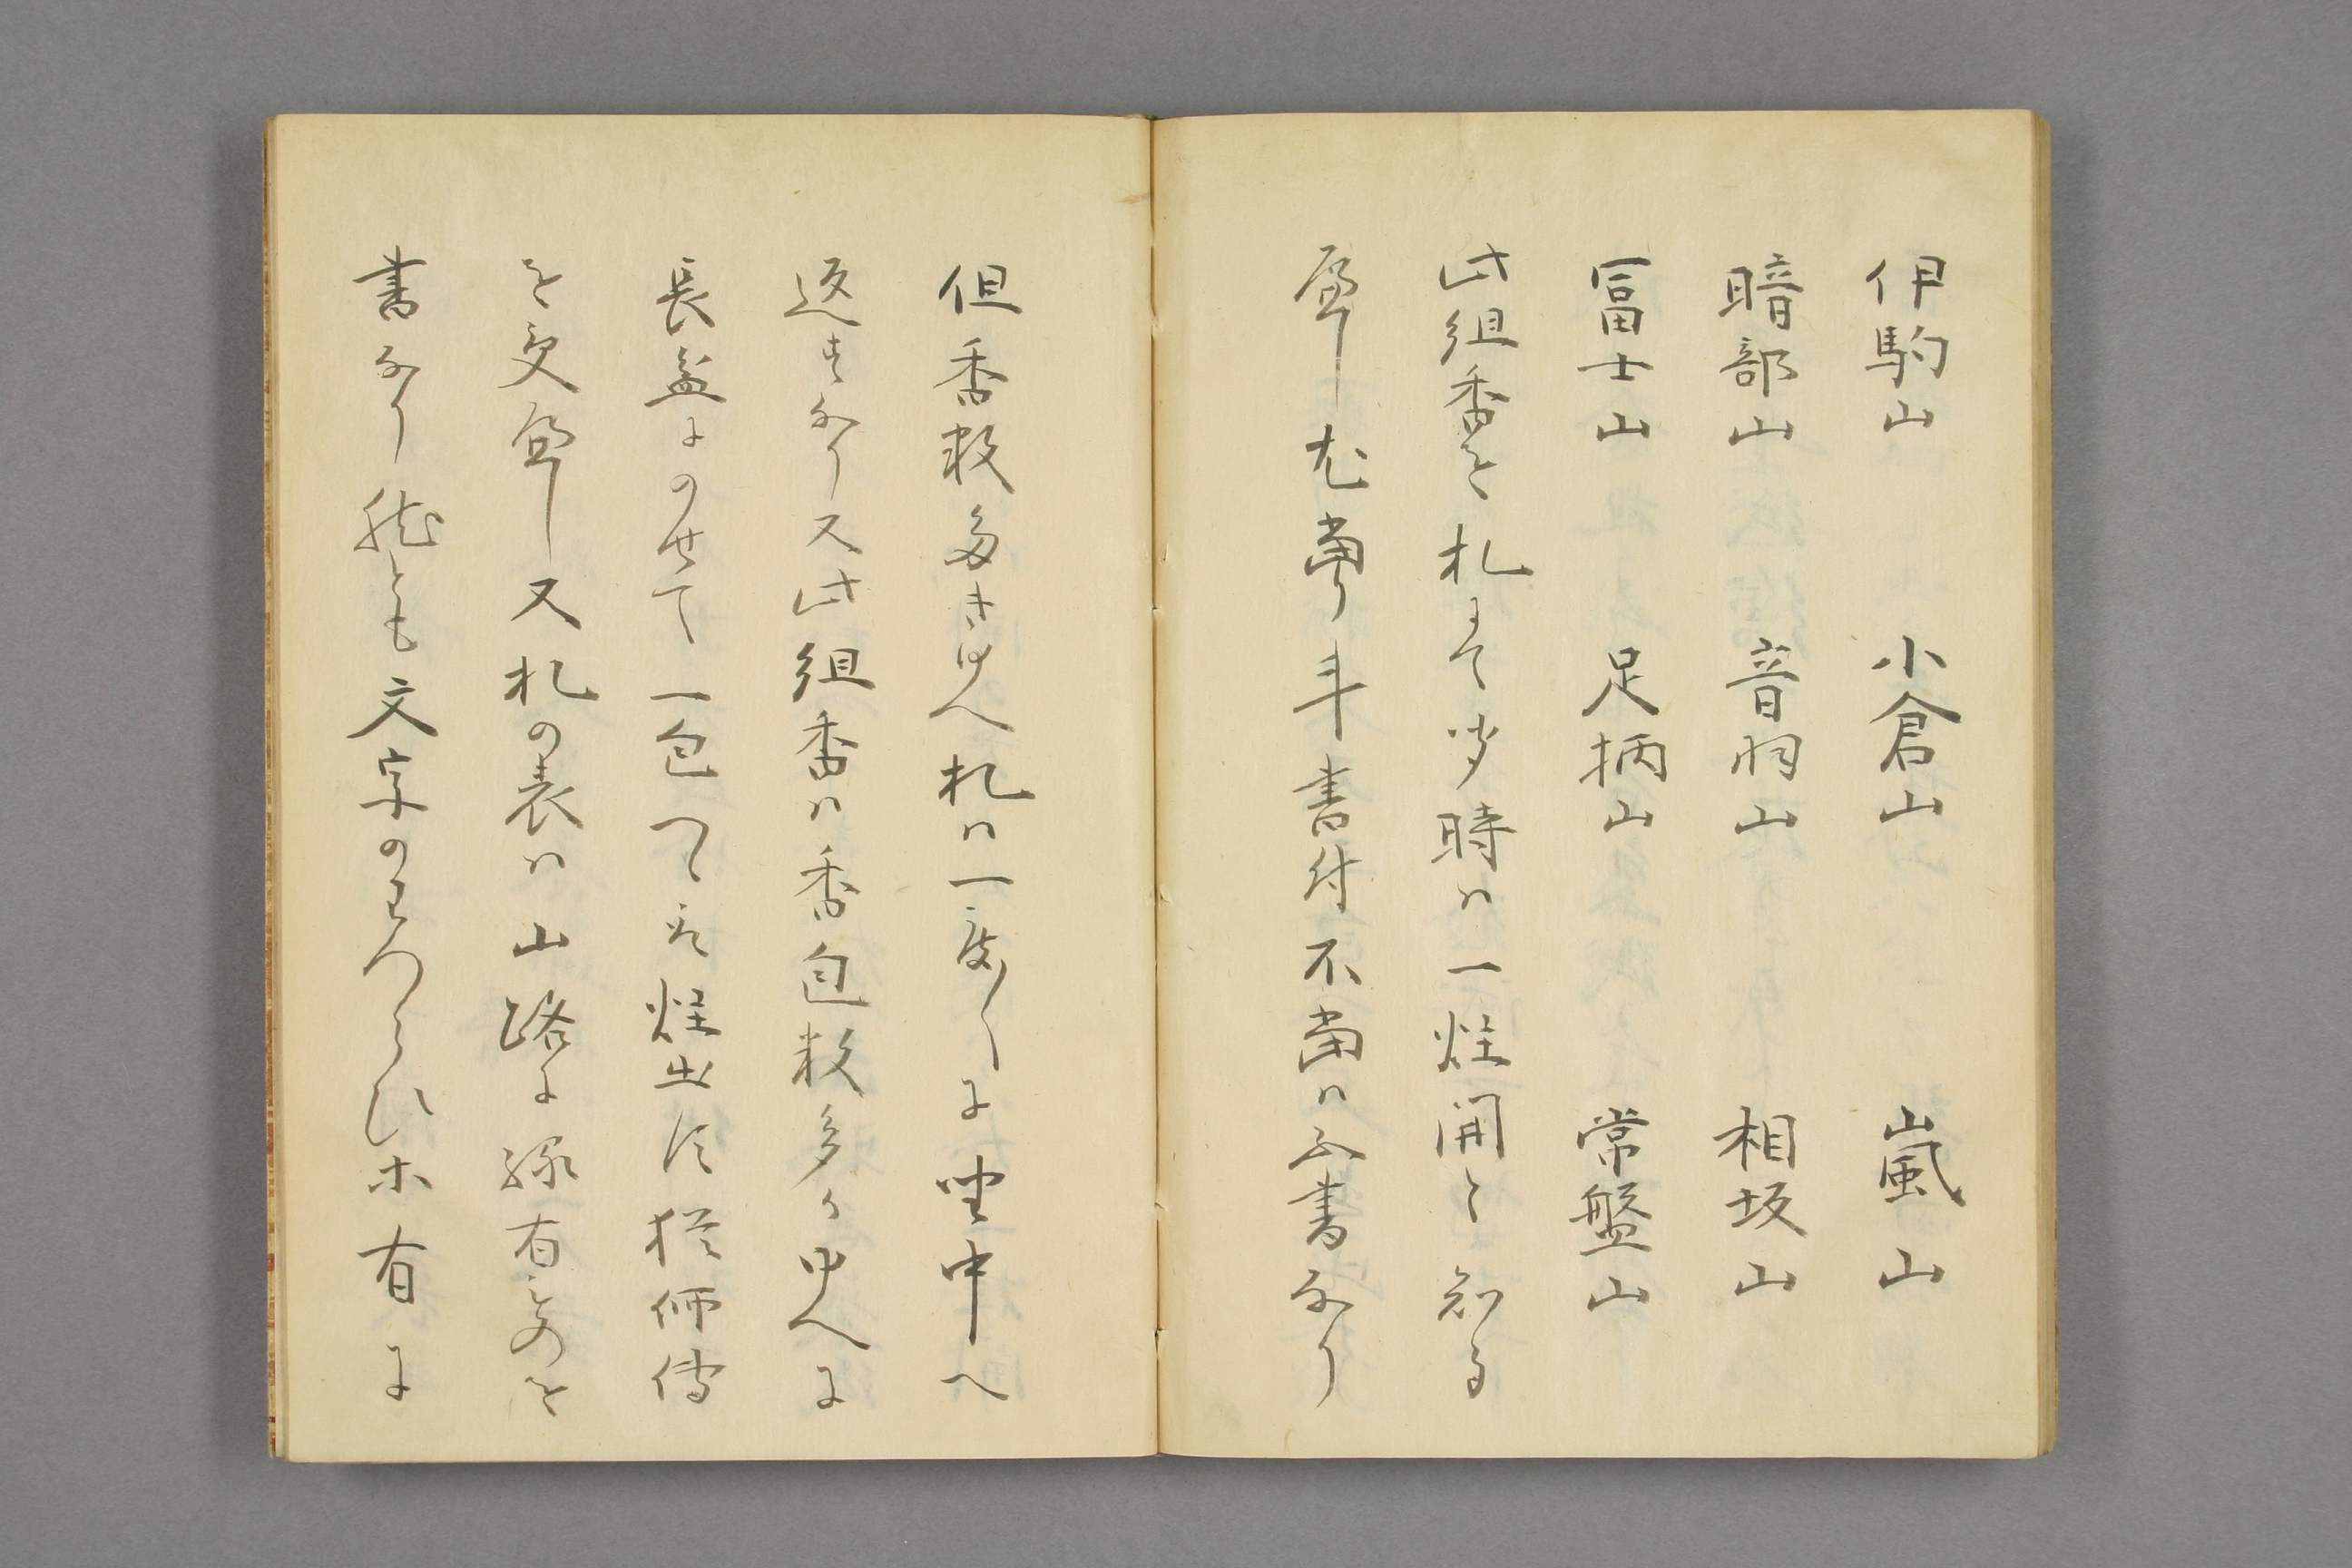 伊駒山　小倉山　嵐山
暗部山　音羽山　相坂山
冨士山　足柄山　常盤山
此組香を札にて聞時ハ一炷開と知る
へし尤當り斗書付不當ハ不書なり
但香数多きゆへ札ハ一度〱に座中へ
返すなり又此組香ハ香包数多くゆへに
長盆にのせて一包つゝ炷出す猶師傳
を受へし又札の表ハ山路に縁有ものを
書なり然とも文字の有に